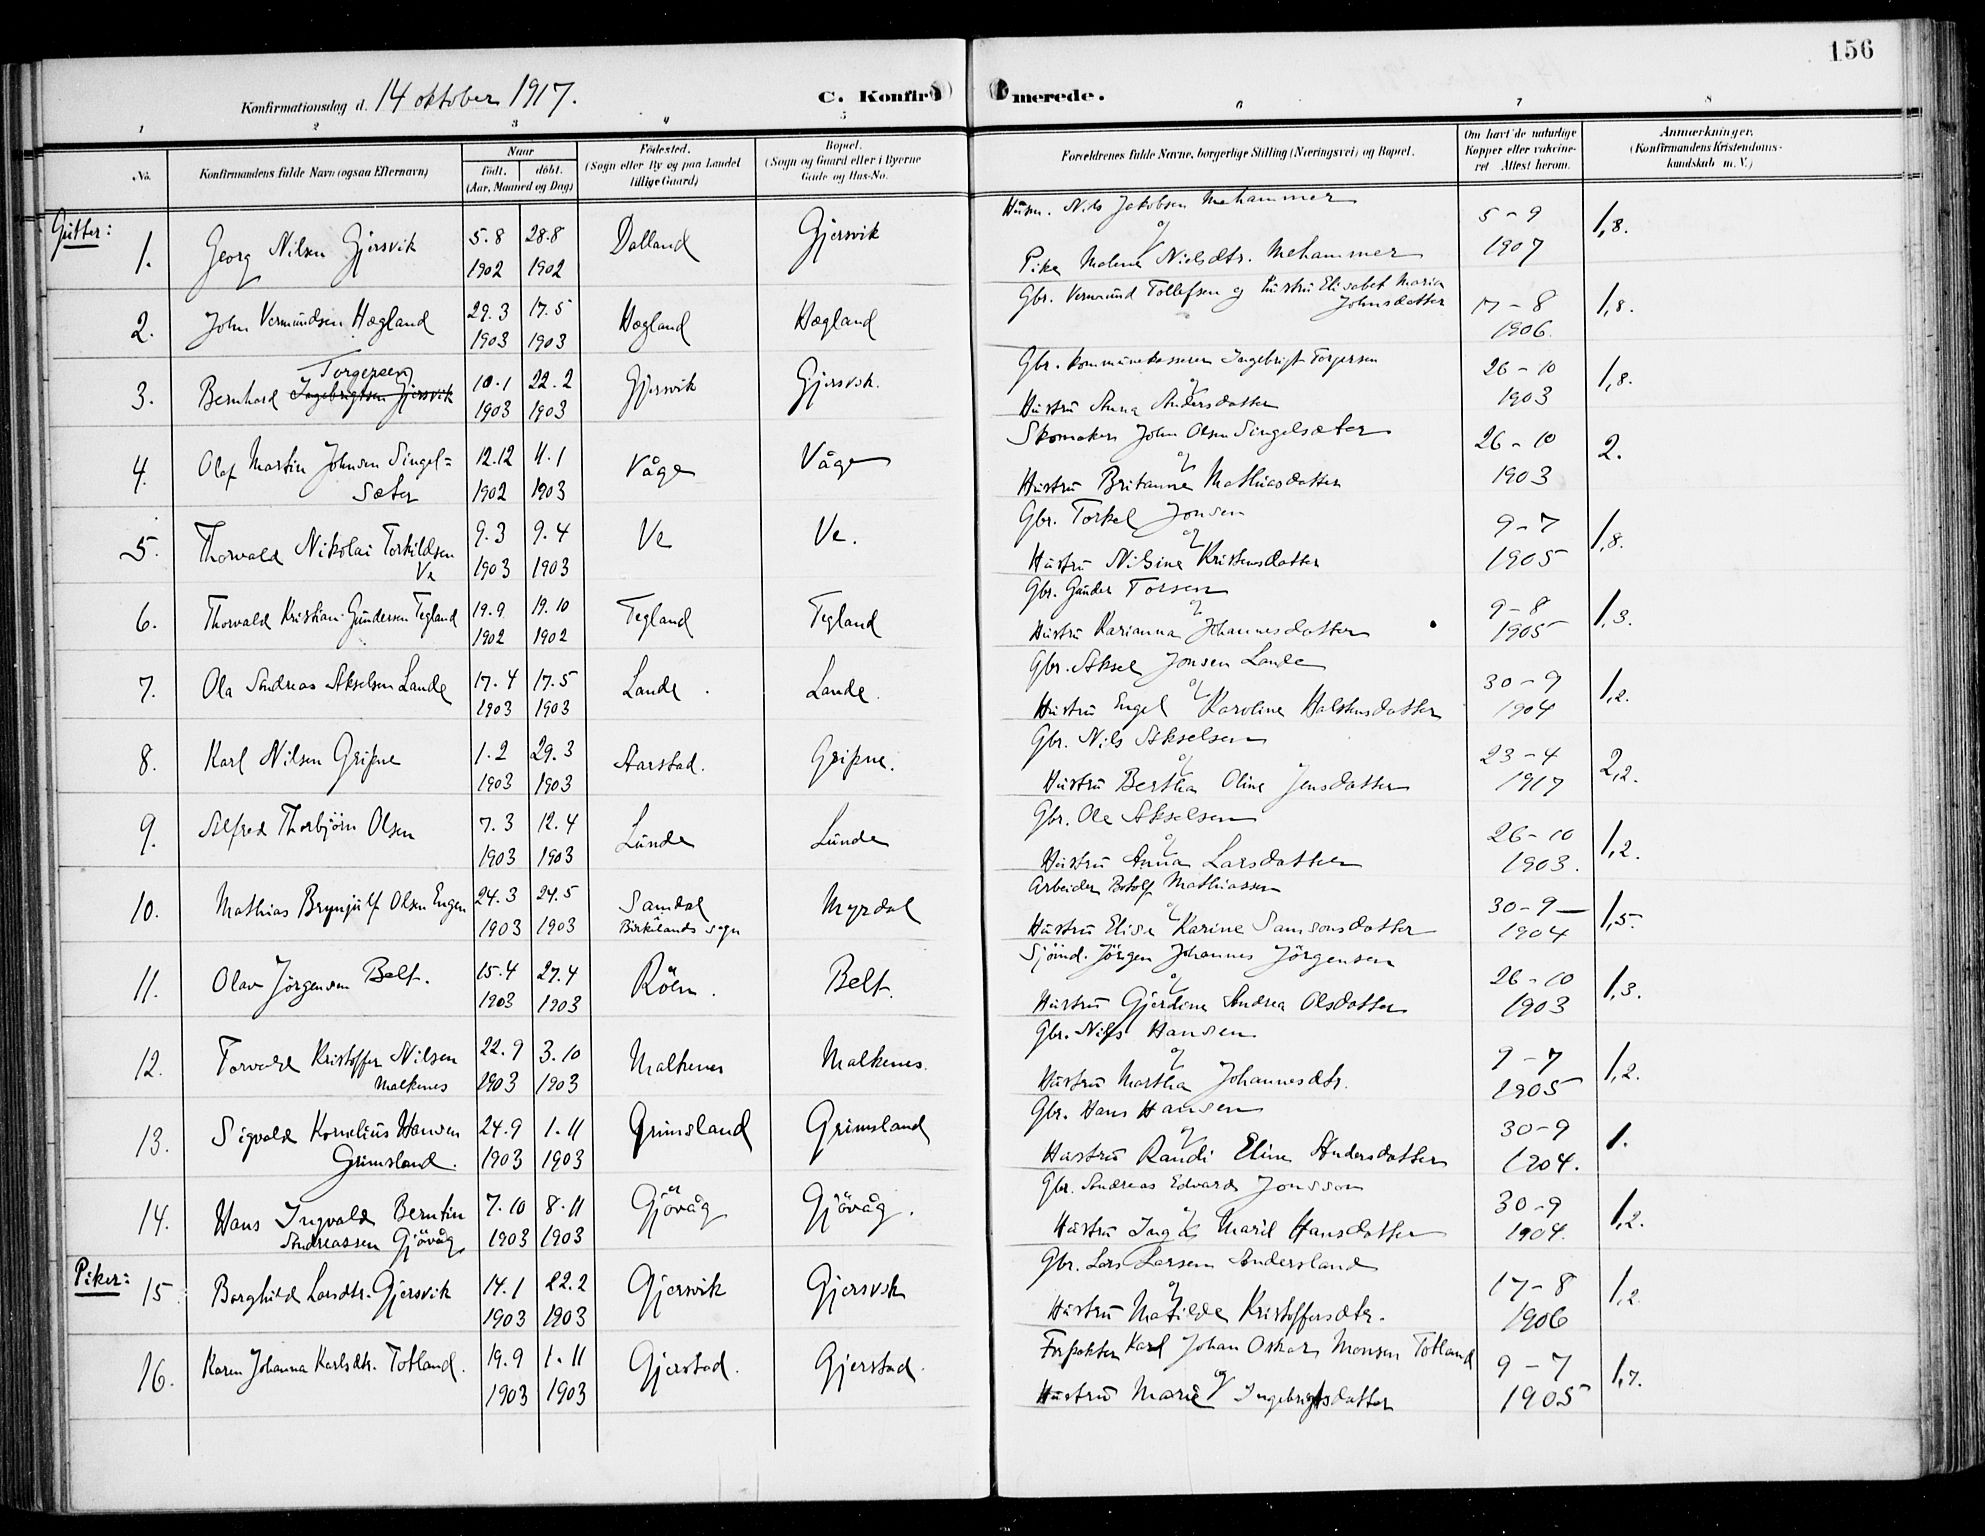 156
Konfirmationsdag d. 14 oktober 1917.
C. Konfirmerede.
1 2 3 4 5 6 7 8
No.
Konfirmandens fulde Navn (ogsaa Efternavn)
Naar
født. døbt.
(Aar, Maaned og Dag)
Fødested.
(Sogn eller By og paa Landet
tillige Gaard)
Bopæl.
(Sogn og Gaard eller i Byerne
Gade og Hus-No.
Forældrenes fulde Navne, borgerlige Stilling (Næringsvei) og Bopæl.
Om havt de naturlige
Kopper eller vakcine-
ret Attest herom.
Anmærkninger.
(Konfirmandens Kristendoms-
kundskab m. V.)
Gutter:
1. Georg Nilsen Gjersvik 5.8 1902 28.8 1902 Dalland Gjersvik
Husm. Nils Jakobsen Mehammer
og
Pike Malena Nielsdtr. Mehammer
5-9 1907 1,8.
2. John Vermundsen Hægland 29.3 1903 17.5 1903 Hægland Hægland
Gbr. Vermund Tollefsen og Hustru Elisabet Maria
Johnsdatter
17-8 1906. 1,8.
3. Bernhard Ingebrigtsen Gjersvik 10.1 1903 22.2 1903 Gjersvik Gjersvik.
Torgersen
Gbr. kommunekasserer Ingebrigt Torgersen
og
Hustru Anna Andersdatter
26-10 1903 1,8.
4. Olaf Martin Johnsen Singel=
Sæter 12.12 1902 4.1 1903 Våge Våge
Skomaker John Olsen Singelsæter
og
Hustru Britanna Mathiasdatter
26-10 1903 2.
5. Thorvald Nikolai Torkildsen
Ve 9.3 1903 9.4 1903 Ve Ve.
Gbr. Torkel Jonsen
og
Hustru Nilsine Kristensdatter
9-7 1905 1,8.
6. Thorvald Kristian Gundersen Tegland 19.9 1902 19.10 1902 Tegland Tegland
Gbr. Gunder Torsen
og
Hustru Karianna Johannesdatter
9-8 1905 1,3.
7. Ola Andreas Akselsen Lande 17.4 1903 17.5 1903 Lande. Lande.
Gbr. Aksel Jonsen Lande
og
Hustru Engel Karoline Halstensdatter
30-9 1904 1,2.
8. Karl Nilsen Gripne 1.2 1903 29.3 1903 Aarstad. Gripne.
Gbr. Nils Akselsen
og
Hustru Bertha Oline Jensdatter
23-4 1917 2,2.
9. Alfred Thorbjörn Olsen 7.3 1903 12.4 1903 Lunde Lunde
Gbr. Ole Akselsen
og
Hustru Anna Larsdatter
26-10 1903. 1,2.
10. Mathias Brynjulf Olsen Engen 24.3 1903 24.5 1903 Samdal
Birkelands sogn Myrdal
Arbeider Botolf Mathiassen
og
Hustru Elise Karine Samsonsdatter
30-9 1904 1,5.
11. Olav Jörgensen Belt. 15.4 1903 27.4 1903 Belt.
Sjömd. Jörgen Johannes Jörgensen
og
Hustru Gjerdine Andrea Olsdatter
26-10 1903 1,3.
12. Torvald Kristoffer Nilsen
Malkenes 22.9 1903 3.10 1903 Malkenes Malkenes.
Gbr. Nils Hansen
og
Hustru Martha Johannesdtr.
9-7 1905 1,2.
13. Sigvald Kornelius Hansen
Grimsland. 24.9 1903 1.11 1903 Grimsland Grimsland
Gbr. Hans Hansen
og
Hustru Randi Eline Andersdatter
30-9 1904. 1.
14. Hans Ingvald Berntin
Andreassen Gjövåg 7.10 1903 8.11 1903 Gjövåg Gjövåg.
Gbr. Andreas Edvard Jonsson
og
Hustru Inga Maril Hansdatter
30-9 1904. 1,2.
Piker:
15 Borghild Larsdtr. Gjersvik 14.1 1903 22.2 1903 Gjersvik Gjersvik
Gbr. Lars Larsen Andersland
og
Hustru Matilde Kristoffersdtr.
17-8 1906 1,2
16. Karen Johanna Karlsdtr. Totland. 19.9 1903 1.11 1903 Gjerstad. Gjerstad.
Forpakter Karl Johan Oskar Monsen Totland
og
Hustru Marie Ingebrigtsdatter
9-7 1905 1,7.